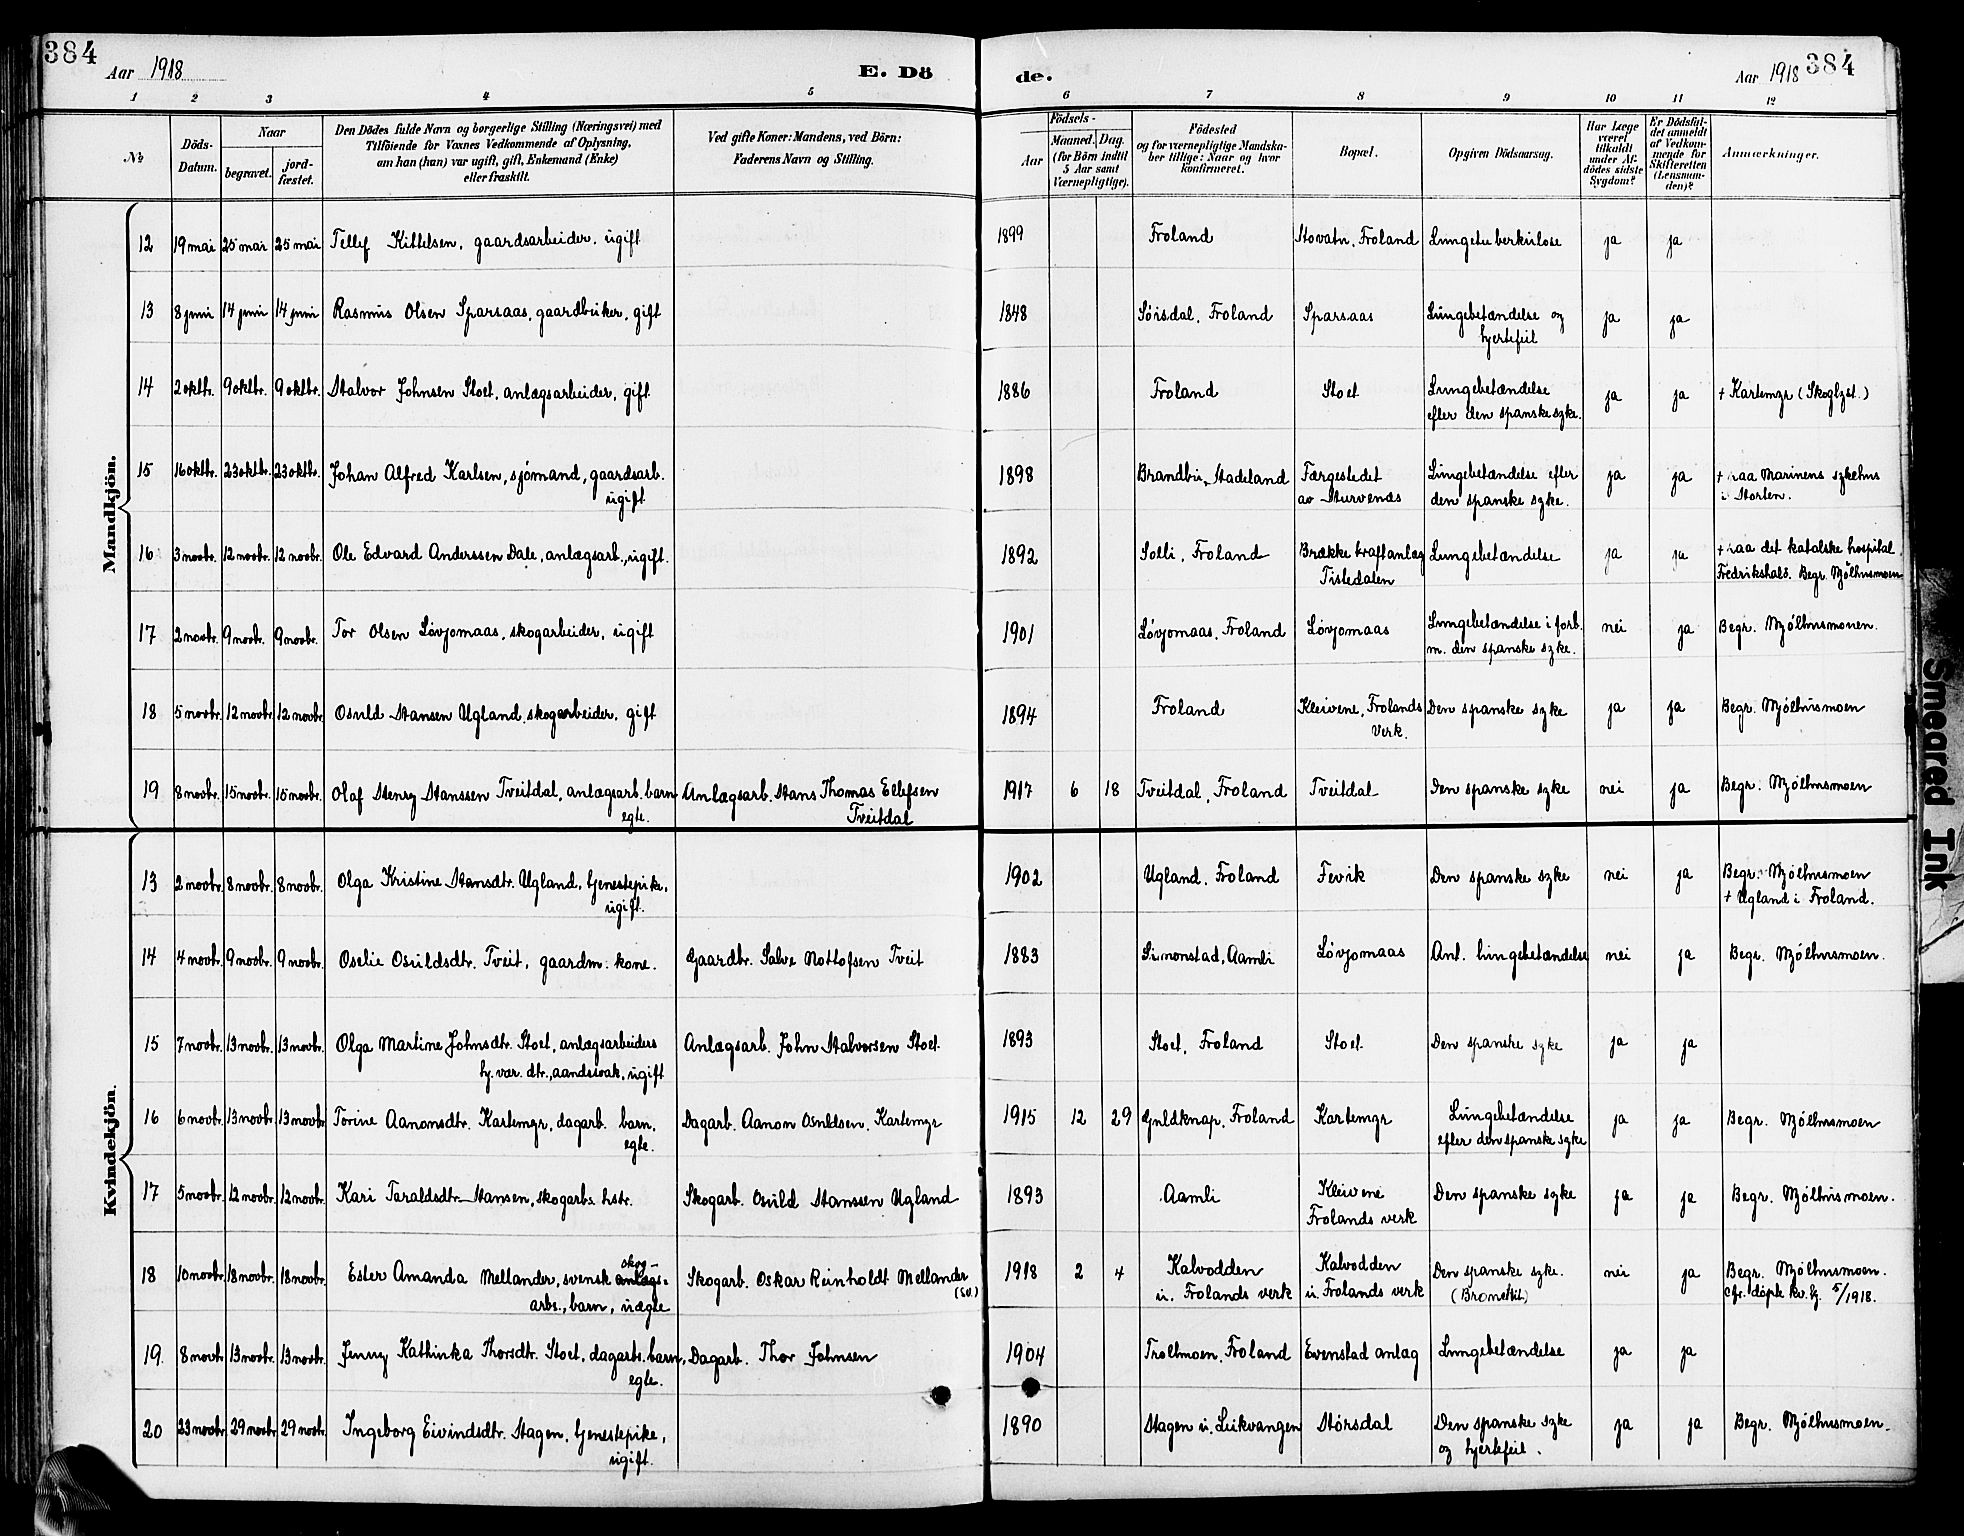 384
Aar 1918
E. Dö
de.
Aar 1918
384
1 2 3 4 5 6 7 8 9 10 11 12
№
Döds-Datum.
Naar
begravet.
jord-fæstet.
Den Dödes fulde Navn og borgerlige Stilling (Næringsvei) med
Tilföiende for Voxnes Vedkommende af Oplysning,
om han (hun) var ugift, gift, Enkemand (Enke)
eller fraskilt.
Ved gifte Koner: Mandens, ved Börn:
Faderens Navn og Stilling.
Födsels-
Aar
Maaned.
Dag.
(for Börn indtil
5 Aar samt
Værnepligtige).
Födested
og for værnepligtige Mandska-
ber tillige: Naar og hvor
konfirmeret.
Bopæl.
Opgiven Dödsaarsag.
Har Læge
været
tilkaldt
under Af-
dödes sidste
Sygdom?
Er Dödsfal-
det anmeldt
af Vedkom-
mende for
Skifteretten
(Lensman-
den)?
Anmærkninger.
Mandkjön.
12 19 mai 25 mai 25 mai Tellef Kittelsen, gaardsarbeider, ugift 1899 Froland Hovatn, Froland Lungetuberkulose ja ja
13 8 juni 14 juni 14 juni Rasmus Olsen Sparsaas, gaardbruker, gift 1848 Sørisdal, Froland Sparsaas Lungebetændelse og ja ja
hjertefeil
14 2 oktb. 9 oktbr. 9 oktbr. Halvor Johnsen Stoet, anlægsarbeider, gift 1886 Froland Stoet Lungebetændelse ja ja + Kartemyr (Skoglyst.)
efter den spanske syke.
15 16 oktbr. 23 oktbr. 23 oktbr. Johan Alfred Karlsen, sjømand, gaardsarb. 1898 Brandbu, Hadeland Færgestedet Lungebetændelse efter ja ja + paa Marinens sykehus
ugift av Hurvenæs den spanske syke. i Horten.
16 3 novbr. 12 novbr. 12 novbr. Ole Edvard Anderssen Dale, anlægsarb., ugift. 1892 Solli, Froland Brække kraftanlæg Lungebetændelse ja ja + paa det katolske hospital
Tistedalen Fredrikshald. Begr. Mjølhusmoen
17 2 novbr. 9 novbr. 9 novbr. Tor Olsen Løvjomaas, skogarbeider, ugift 1901 Løvjomaas, Froland Løvjomaas Lungebetændelse i forb. nei ja Begr. Mjølhusmonen.
m. den spanske syke.
18 5 novbr. 12 novbr. 12 novbr. Osuld Hansen Ugland, skogarbeider, gift 1894 Froland Kleivene, Frolands Den spanske syke ja ja Begr. Mjølhusmoen
Verk.
19 8 novbr. 15 novbr. 15 novbr. Olaf Henry Hanssen Tveitdal, anlægsarb. barn Anlægsarb. Hans Thomas Ellefsen 1917 6 18 Tveitdal, Froland Tveitdal Den spanske syke nei ja Begr. Mjølhusmoen
egte. Tveitdal
Kvindekjön.
13 2 novbr. 8 novbr. 8 novbr. Olga Kristine Hansdtr. Ugland, tjenestepike, 1902 Ugland, Froland Fevik Den spanske syke nei ja Begr. Mjølhusmoen
ugift. + Ugland i Froland.
14 4 novbr. 9 novbr. 9 novbr. Oselie Osuldsdtr. Tveit, gaardm. kone. Gaardbr. Salve Nottofsen Tveit 1883 Simonstad, Aamli Løvjomaas Ant. lungebetændelse nei ja Begr. Mjølhusmoen.
15 7 novbr. 13 novbr. 13 novbr. Olga Martine Johnsdtr. Stoet, anlægsarbeiders Anlægsarb. John Halvorsen Stoet 1893 Stoet, Froland Stoet Den spanske syke ja ja
hj. vær. dtr., aandssvak, ugift
16 6 novbr. 13 novbr. 13 novbr. Torine Aanonsdtr. Kartemyr, dagarb. barn, Dagarb. Aanon Osuldsen, Kartemyr 1915 12 29 Guldknap, Froland Kartemyr Lungebetændelse ja ja Begr. Mjølhusmoen
egte. efter den spanske syke
17 5 novbr. 12 novbr. 12 novbr. Kari Taraldsdtr. Hansen, skogarbs. hstr. Skogarb. Osuld Hanssen Ugland 1893 Aamli Kleivene Den spanske syke ja ja Begr. Mjølhusmoen.
Frolands verk
18 10 novbr. 18 novbr. 18 novbr. Ester Amanda Mellander, svensk anlægs- skog- Skogarb. Oskar Reinholdt Mellander 1918 2 4 Kalvodden Kalvodden Den spanske syke. nei ja Begr. Mjølhusmoen.
arbs., barn, uægte (sv.) u. Frolands verk u. Frolands verk (Bronchit) cfr. døpte kv. kj. 5/1918.
19. 8 novbr 13 novbr. 13 novbr. Jenny Kathinka Thorsdtr. Stoet, dagarb. barn, Dagarb. Thor Johnsen 1904 Trollmoen, Froland Evenstad anlæg Lungebetændelse ja ja
egte.
20 23 novbr. 29 novbr 29 novbr. Ingeborg Eivindsdtr. Hagen, tjenestepike, 1890 Hagen u. Leikvangen Hørsdal Den spanske syke ja ja Begr. Mjølhusmoen.
ugift. og hjertefeil.
Smeared Ink